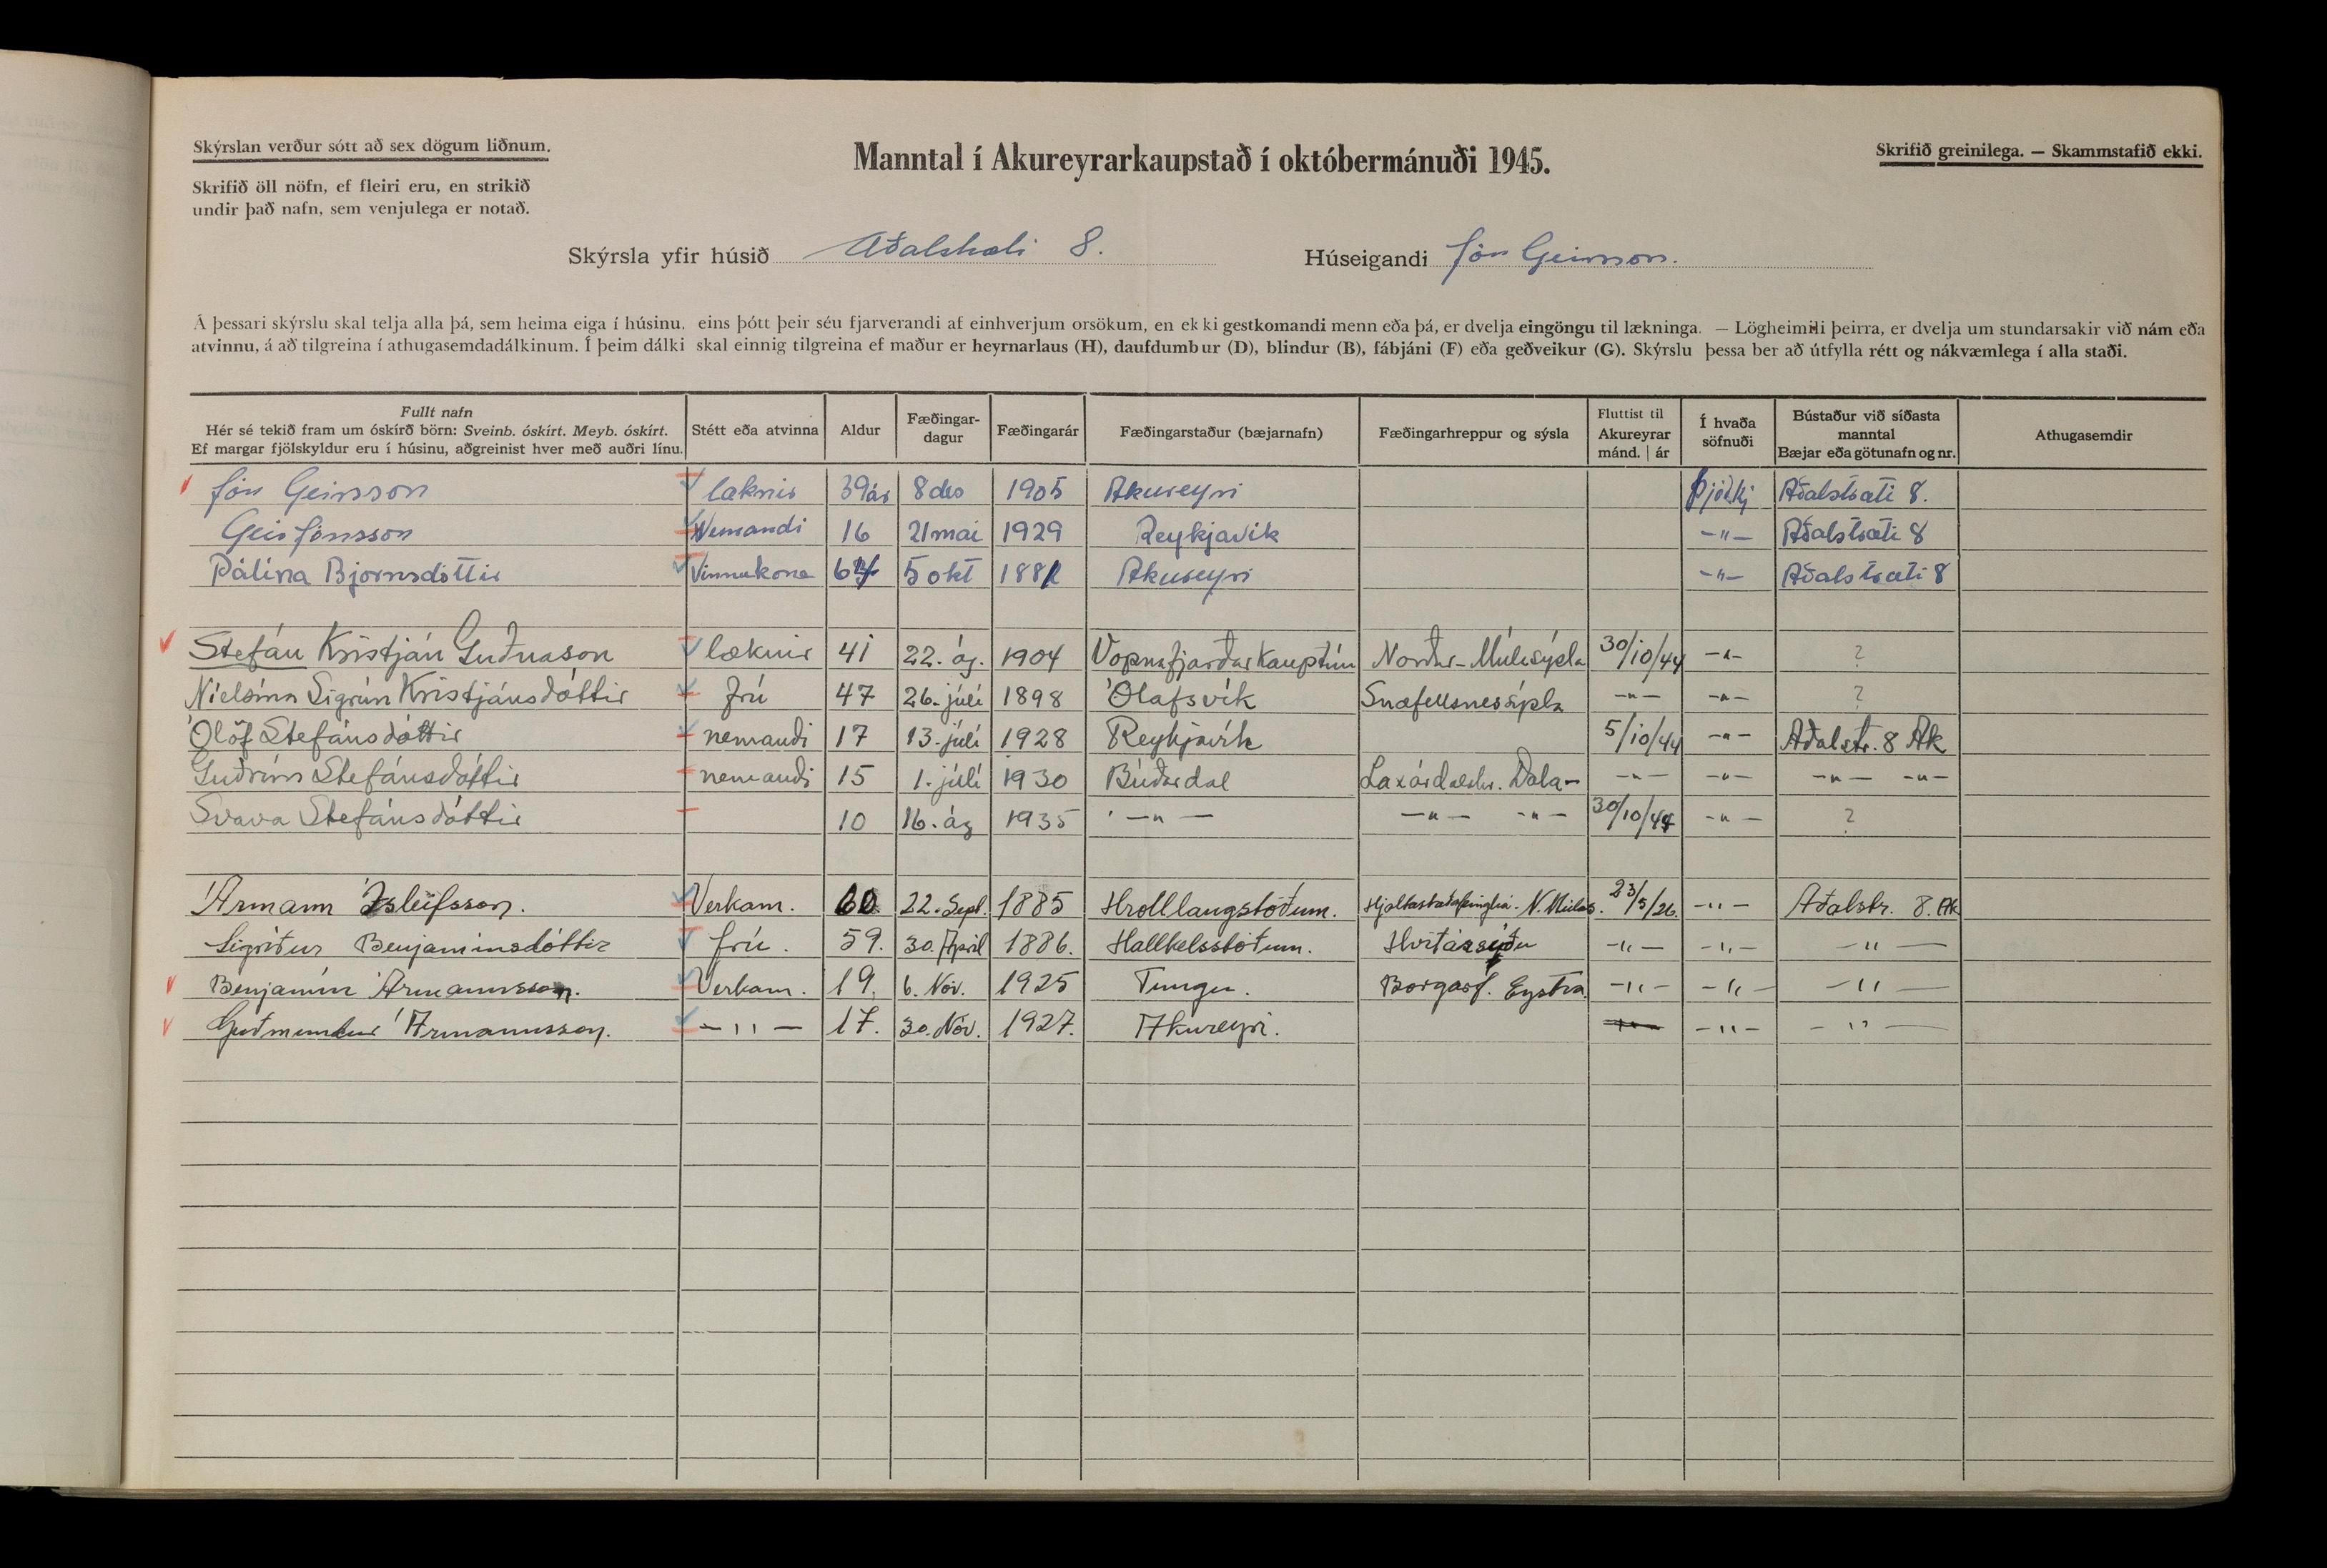 Skýrslan verður sótt að sex dögum liðnum.
Manntal í Akureyrarkaupstað í októbermánuði 1945.
Skrifið greinilega. — Skammstafið ekki.
Skrifið öll nöfn, ef fleiri eru, en strikið
undir það nafn, sem venjulega er notað.
Skýrsla yfir húsið Aðalstræti 8. Húseigandi Jón Geirsson.
Á þessari skýrslu skal telja alla þá, sem heima eiga í húsinu, eins þótt þeir séu fjarverandi af einhverjum orsökum, en ekki gestkomandi menn eða þá, er dvelja eingöngu til lækninga. — Lögheimili þeirra, er dvelja um stundarsakir við nám eða
atvinnu, á að tilgreina í athugasemdadálkinum. Í þeim dálki skal einnig tilgreina ef maður er heyrnarlaus (H), daufdumbur (D), blindur (B), fábjáni (F) eða geðveikur (G). Skýrslu þessa ber að útfylla rétt og nákvæmlega í alla staði.
Fullt nafn
Hér sé tekið fram um óskírð börn: Sveinb. óskírt. Meyb. óskírt.
Ef margar fjölskyldur eru í húsinu, aðgreinist hver með auðri línu.
Stétt eða atvinna
Aldur
Fæðingar-
dagur
Fæðingarár
Fæðingarstaður (bæjarnafn)
Fæðingarhreppur og sýsla
Fluttist til
Akureyrar
mánd. | ár
Í hvaða
söfnuði
Bústaður við síðasta
manntal
Bæjar eða götunafn og nr.
Athugasemdir
Jón Geirsson læknir 39 ár 8 des 1905 Akureyri Þjóðkj Aðalstræti 8.
Geir Jónsson Nemandi 16 21 mai 1929 Reykjavík -"- Aðalstræti 8
Pálína Bjornsdóttir Vinnukona 5 okt Akureyri -"- Aðalstræti 8
Stefán Kristján Guðnason læknir 41 22. ág. 1904 Vopnafjarðarkauptún Norður-Múlasýsla 30/10/44 -"- ?
Nielsína Sigrún Kristjánsdóttir frú 47 26. júlí 1898 Ólafsvík Snæfellsnessýsla -"- -"- ?
Ólöf Stefánsdóttir nemandi 17 13. júlí 1928 Reykjavík 5/10/44 -"- Aðalstr. 8 Ak
Guðrún Stefánsdóttir nemandi 15 1. júlí 1930 Búðardal Laxárdalshr. Dala- -"- -"- -"- -"-
Svava Stefánsdóttir 10 16. ág 1935 -"- -"- -"- 30/10/44 -"- ?
Ármann Ísleifsson. Verkam. 60 22. Sept. 1885 Hrollaugstöðum. Hjaltastaðaþinghá. N. Múlas. 23/5/26. -"- Aðalstr. 8. Ak
Sigríður Benjamínsdóttir frú. 59. 30. Apríl 1886. Hallkelsstöðum. Hvítársíðu -"- -"- -"-
Benjamín Ármannsson. Verkam. 19. 6. Nóv. 1925 Tungu. Borgarf. Eystra -"- -"- -"-
Guðmundur Ármannsson. -"- 17. 30. Nóv. 1927. Akureyri. -"- -"-